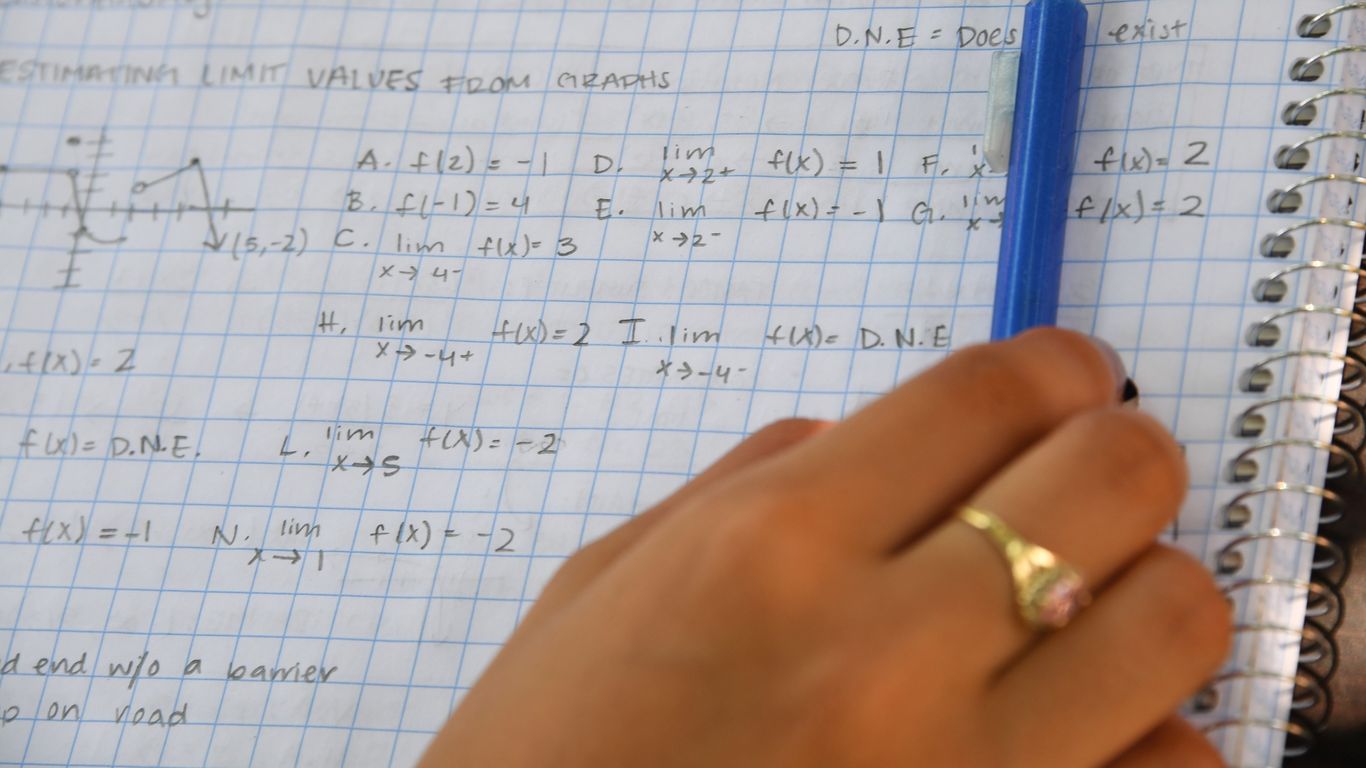 D.N.E = Does exist
ESTIMATING LIMIT VALUES FROM GRAPHS
A. f(2) = -1 D. lim x→2+ f(x) = 1 F. f(x) = 2
B. f(-1) = 4 E. lim x→2- f(x) = -1 G. lim x→ f(x) = 2
(5,-2) C. lim x→4- f(x) = 3
H. lim x→-4+ f(x) = 2 I. lim x→-4- f(x) = D.N.E
f(x) = 2
f(x) = D.N.E. L. lim x→5 f(x) = -2
f(x) = -1 N. lim x→1 f(x) = -2
end w/o a barrier
on road